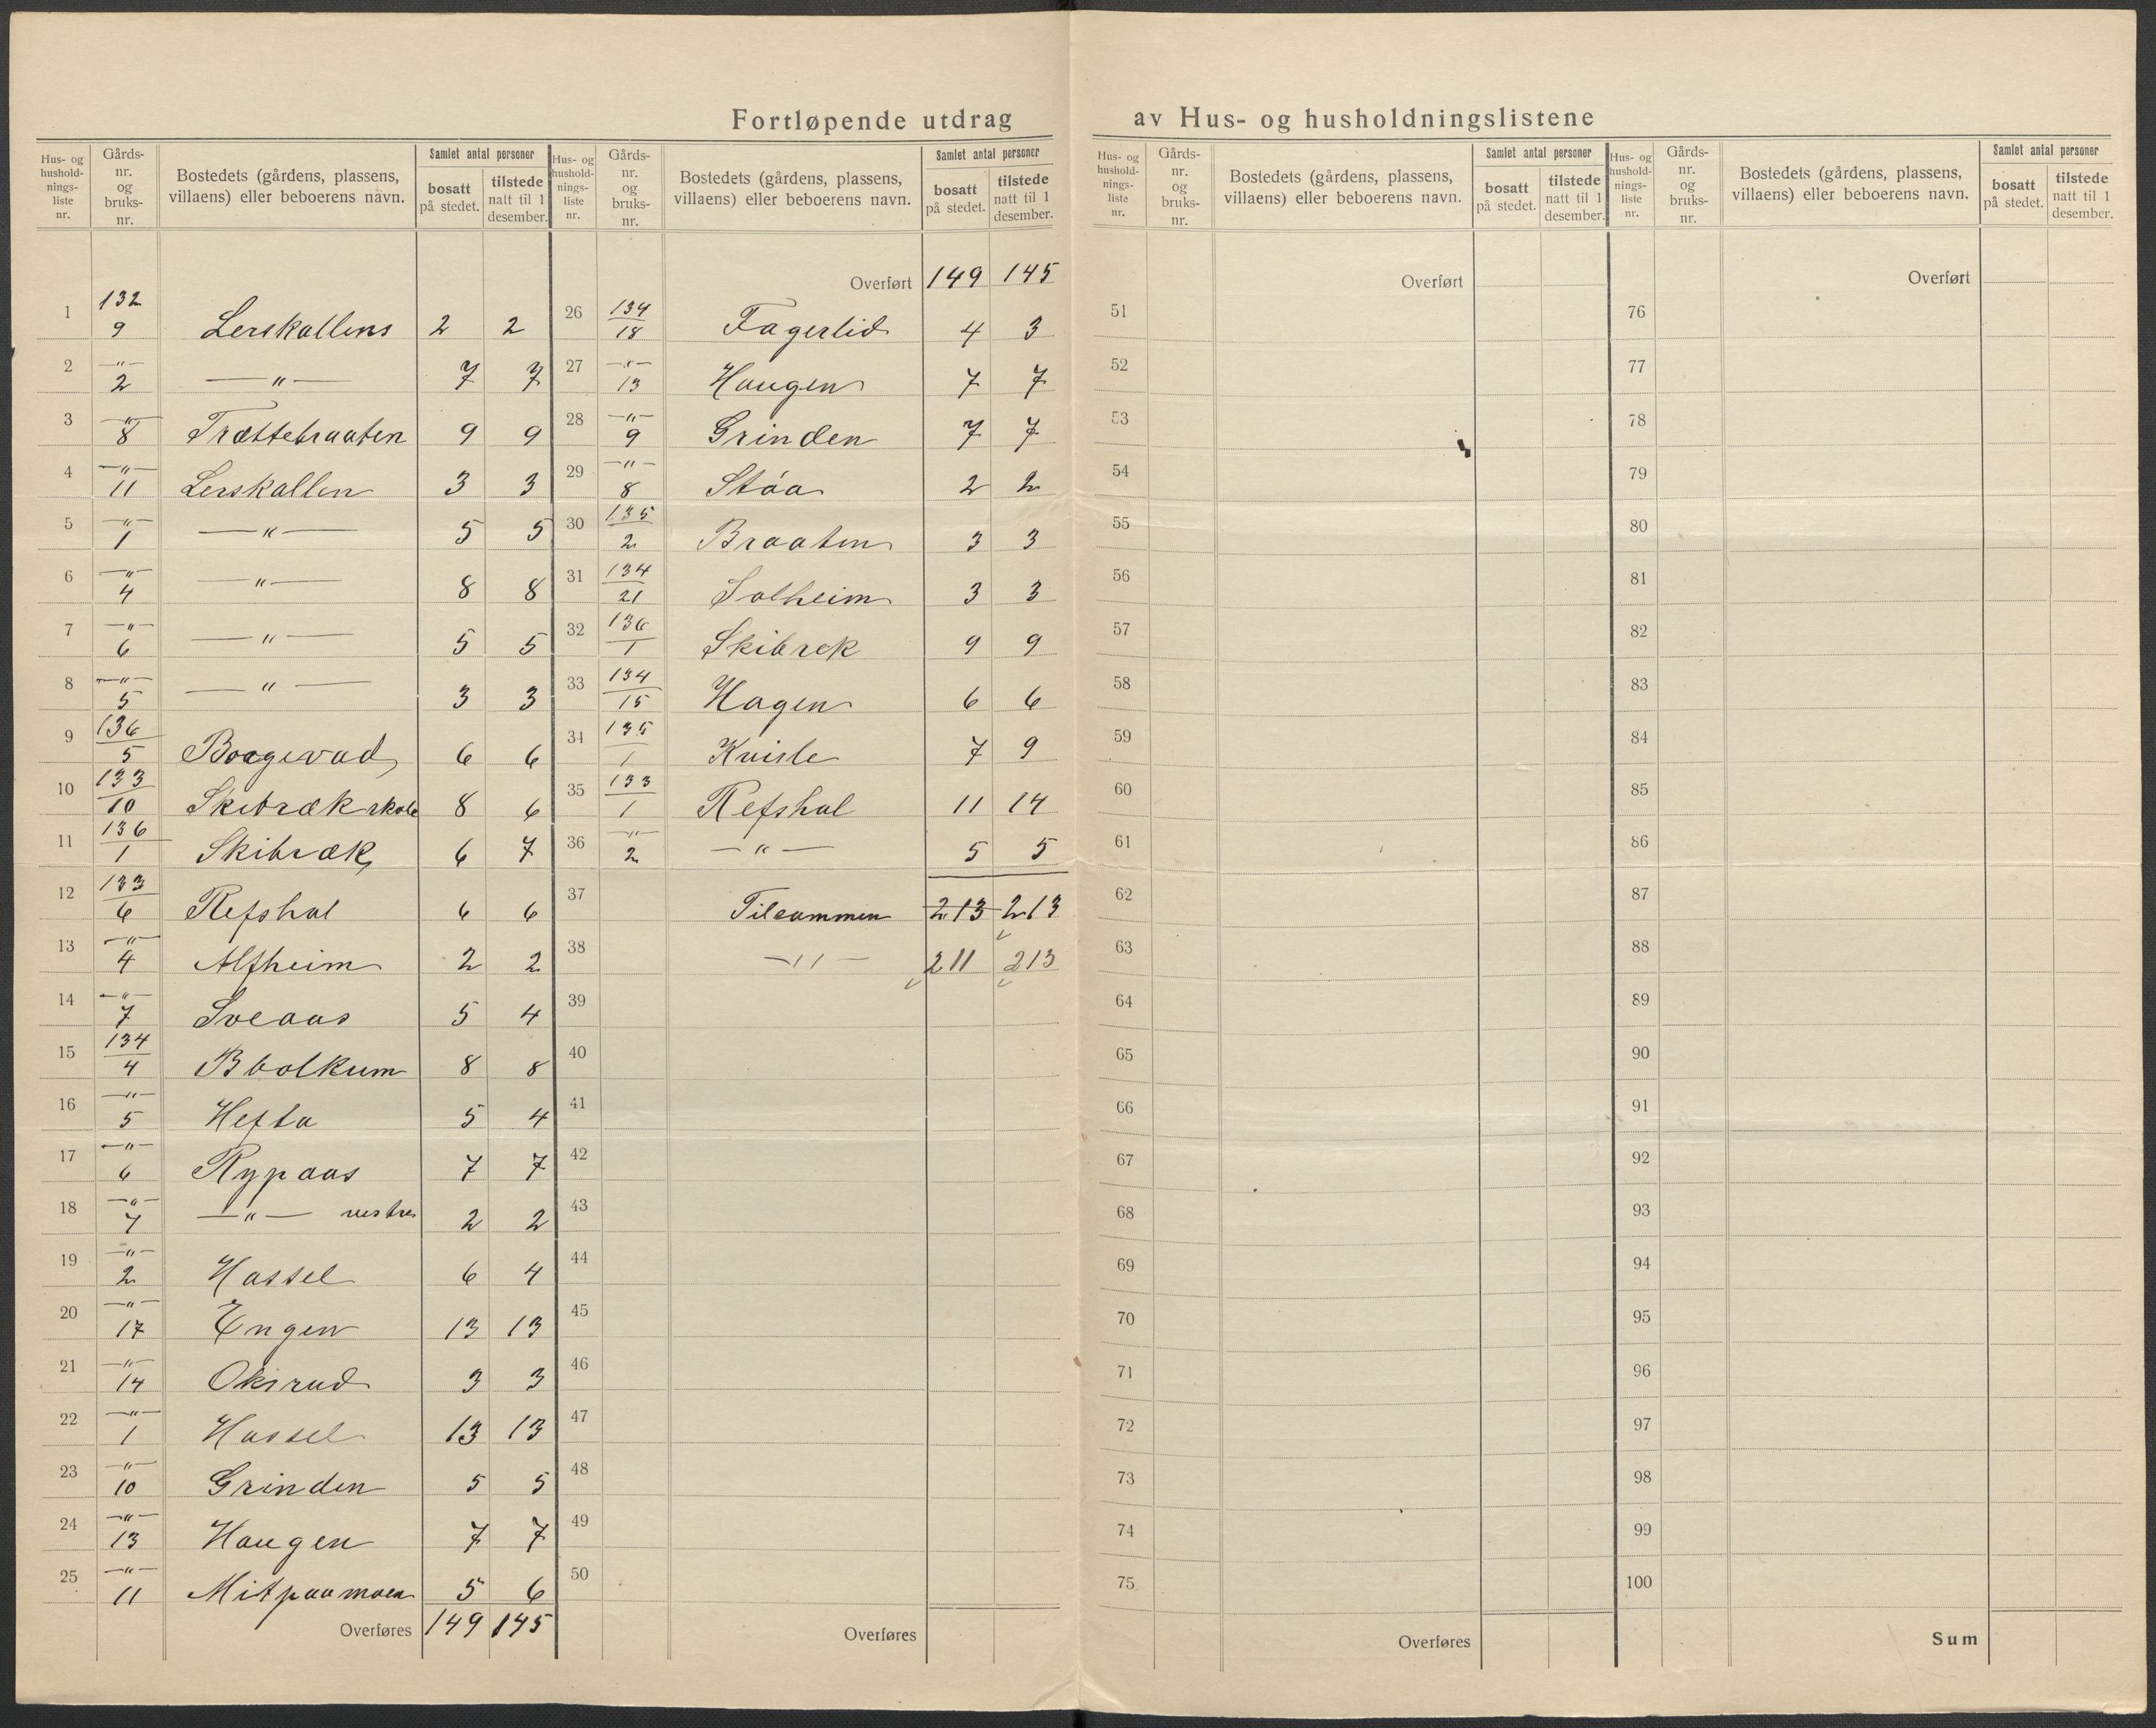 Fortløpende utdrag av Hus- og husholdningslistene
Hus- og husholdnings-liste nr. Gårds-nr. og bruks-nr. Bostedets (gårdens, plassens, villaens) eller beboerens navn. Samlet antal personer bosatt på stedet. tilstede natt til 1 desember.
1 132/9 Lerskallens 2 2
2 —"—/2 —"— 7 7
3 "/8 Trættebraaten 9 9
4 —"—/11 Lerskallen 3 3
5 —"—/1 —"— 5 5
6 —"—/4 —"— 8 8
7 —"—/6 —"— 5 5
8 —"—/5 —"— 3 3
9 136/5 Boagevad 6 6
10 133/10 Skibræk skole 8 6
11 136/1 Skibræk 6 7
12 133/6 Refshal 6 6
13 —"—/4 Alfheim 2 2
14 —"—/7 Sveaas 5 4
15 134/4 Bbolkum 8 8
16 —"—/5 Hefta 5 4
17 —"—/6 Rypaas 7 7
18 —"—/7 —"— vestre 2 2
19 —"—/2 Hassel 6 4
20 —"—/17 Engen 13 13
21 —"—/14 Oksrud 3 3
22 —"—/1 Hassel 13 13
23 —"—/10 Grinden 5 5
24 —"—/13 Haugen 7 7
25 —"—/11 Mitpaamoen 5 6
Overføres 149 145
Hus- og husholdnings-liste nr. Gårds-nr. og bruks-nr. Bostedets (gårdens, plassens, villaens) eller beboerens navn. Samlet antal personer bosatt på stedet. tilstede natt til 1 desember.
Overført 149 145
26 134/18 Fagerlid 4 3
27 —"—/13 Haugen 7 7
28 —"—/9 Grinden 7 7
29 —"—/8 Støa 2 2
30 135/2 Braaten 3 3
31 134/21 Solheim 3 3
32 136/1 Skibrek 9 9
33 134/15 Hagen 6 6
34 135/1 Kvisle 7 9
35 133/1 Refshal 11 14
36 —"—/2 —"— 5 5
37 Tilsammen 213 213
38 —"— 211 213
39
40
41
42
43
44
45
46
47
48
49
50
Overføres
Hus- og husholdnings-liste nr. Gårds-nr. og bruks-nr. Bostedets (gårdens, plassens, villaens) eller beboerens navn. Samlet antal personer bosatt på stedet. tilstede natt til 1 desember.
Overført
51
52
53
54
55
56
57
58
59
60
61
62
63
64
65
66
67
68
69
70
71
72
73
74
75
Overføres
Hus- og husholdnings-liste nr. Gårds-nr. og bruks-nr. Bostedets (gårdens, plassens, villaens) eller beboerens navn. Samlet antal personer bosatt på stedet. tilstede natt til 1 desember.
Overført
76
77
78
79
80
81
82
83
84
85
86
87
88
89
90
91
92
93
94
95
96
97
98
99
100
Sum